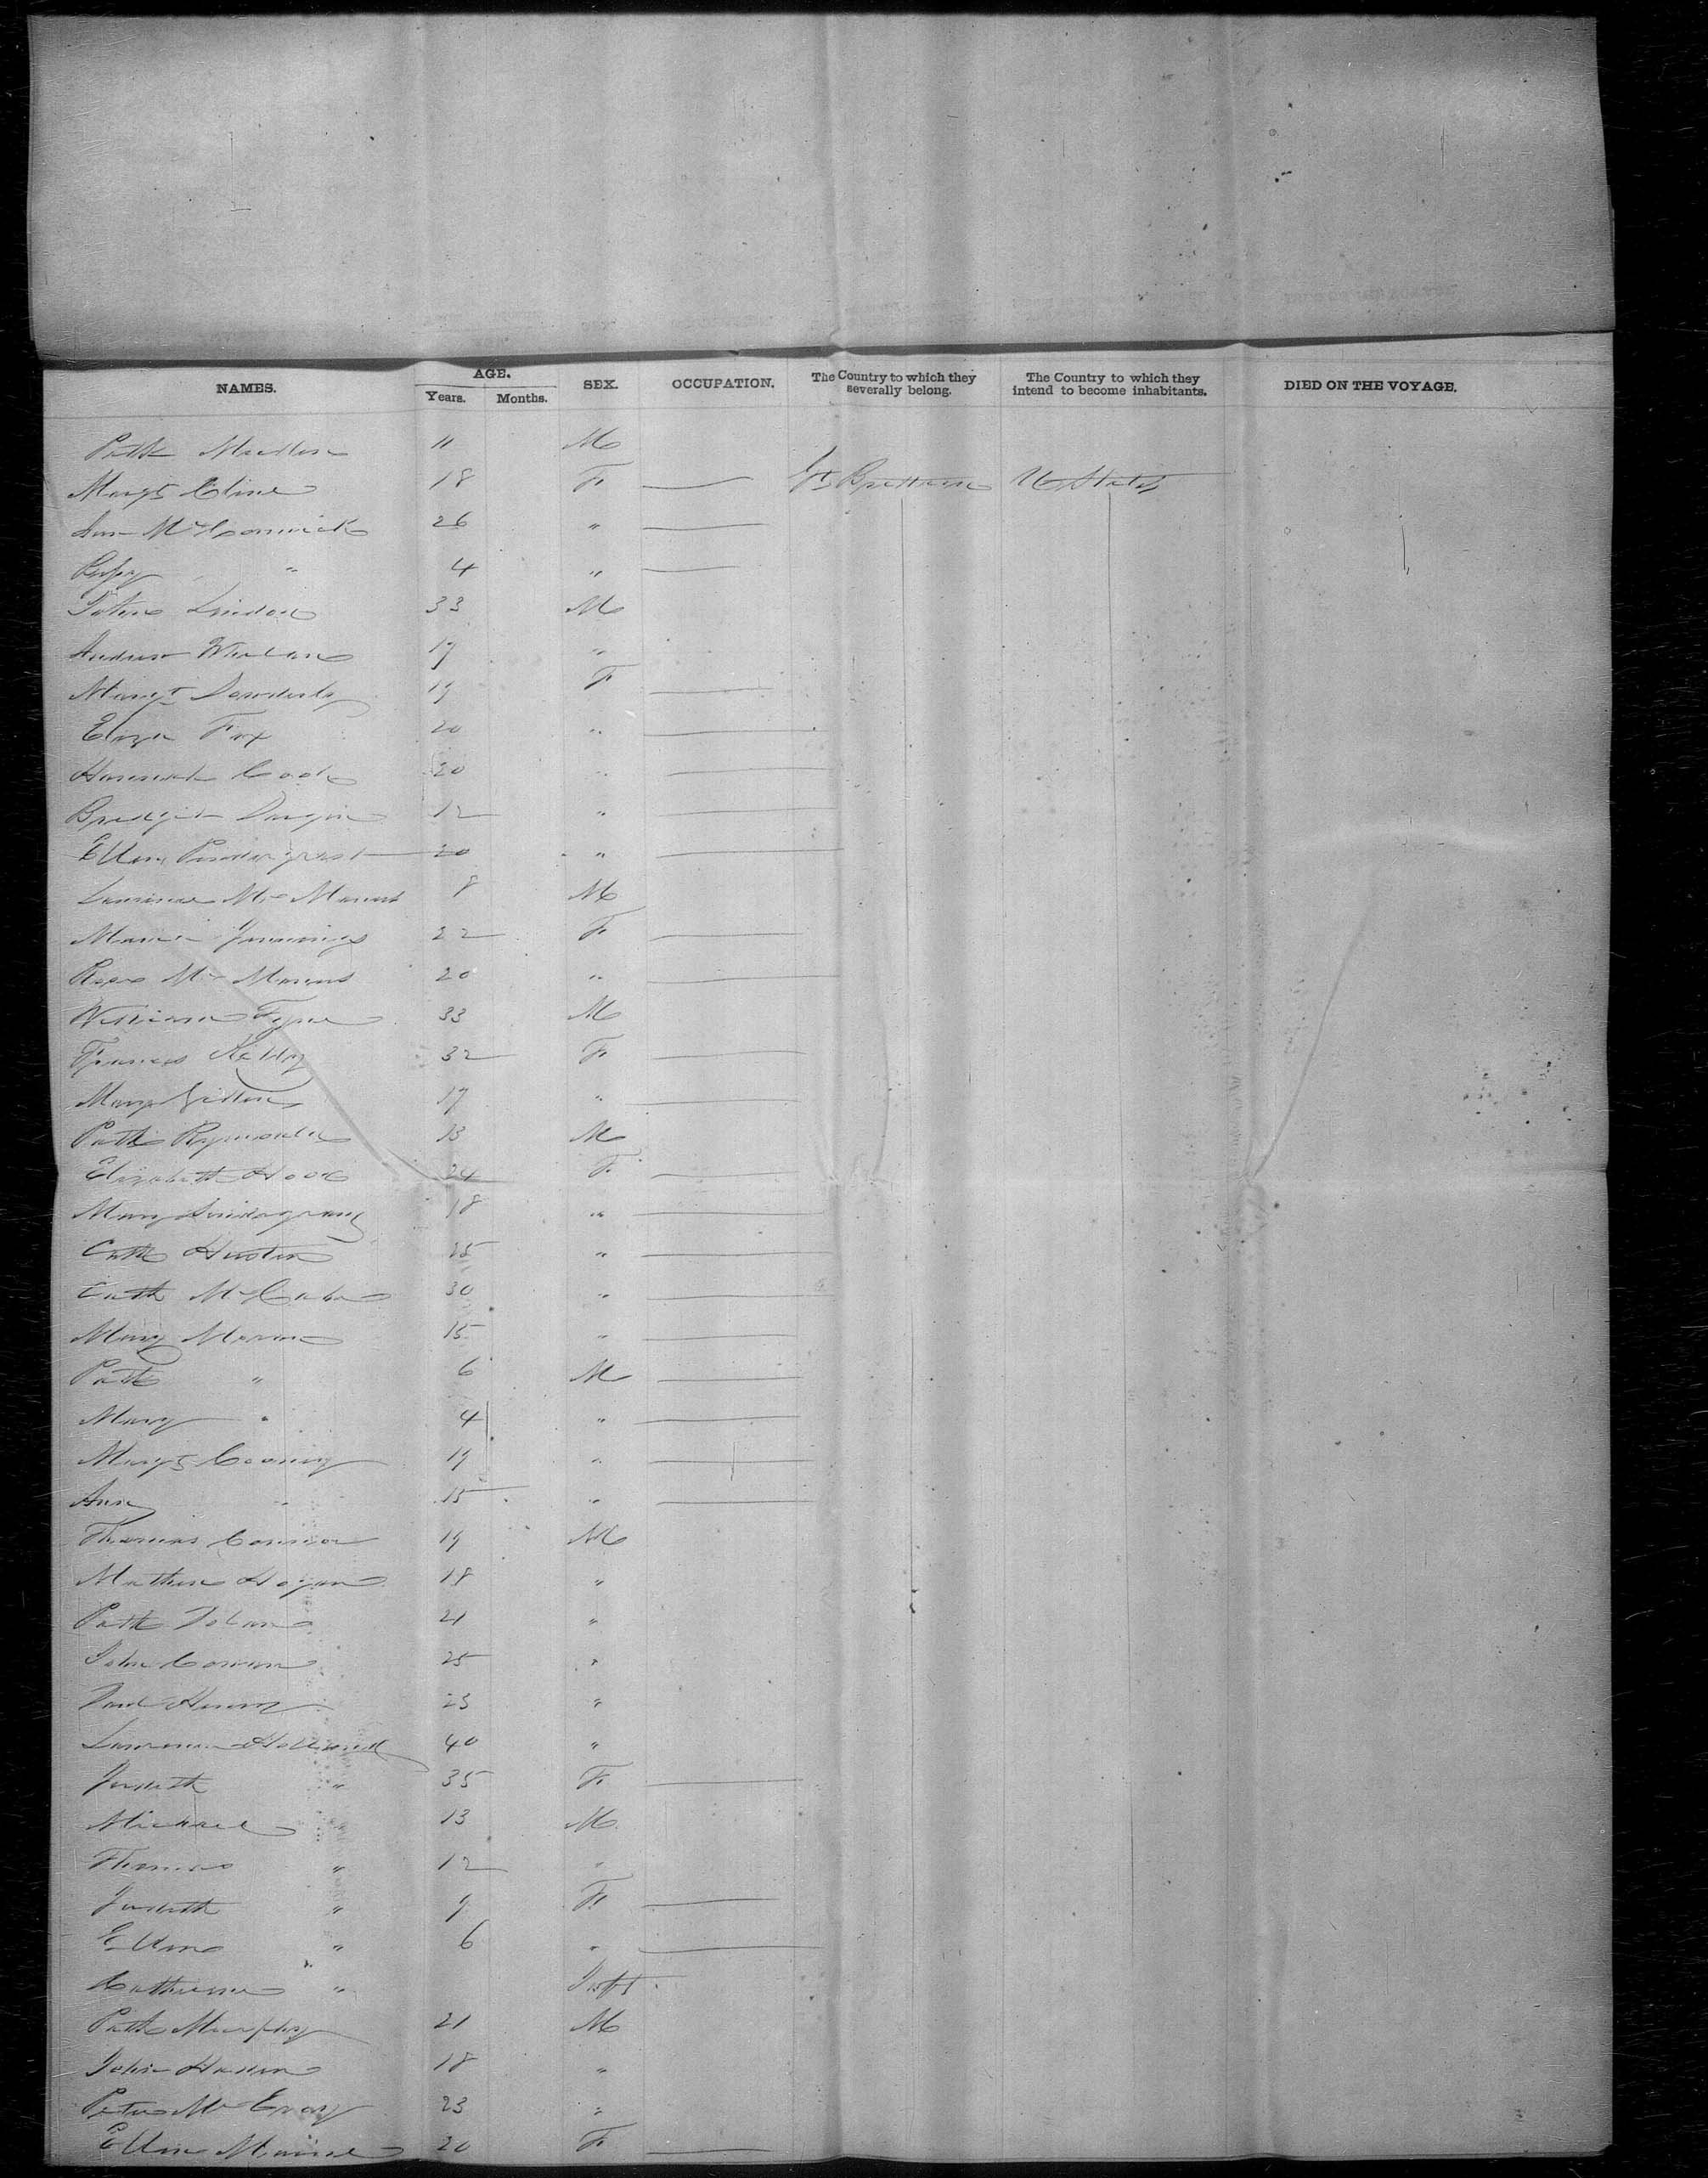 NAMES. AGE. Years. Months. SEX. OCCUPATION. The Country to which they severally belong. The Country to which they intend to become inhabitants. DIED ON THE VOYAGE.
Patk 11 M
Margt Cline 18 F Gt Brittain U States
Ann McCormick 26 "
" 4 "
John Lindon 33 M
Andrew Whelan 19 "
Margt 19 F
Eliza Fox 20 "
Hannah Cook 20 "
Bridget 12 "
Ellen Pendergrast 20 "
Lawrence McManus 8 M
Maria Jennings 22 F
Rose McManus 20 "
William 33 M
Frances Reddy 32 F
Mary 19 "
Patk Reynolds 13 M
Elizabeth 24 F
Mary 18 "
Cath 25 "
Cath McCabe 30 "
Mary Moran 15 "
Patk " 6 M
Mary " 4 "
Margt Cooney 19 "
Ann " 15 "
Thomas Connor 19 M
Mathew Hogan 18 "
Patk Dolan 21 "
John 25 "
Henry 23 "
Lawrence Holland 40 "
Judith " 35 F
Michael " 13 M
Thomas " 12 "
Judith " 9 F
Ellen " 6 "
Catherine " Inft
Patk Murphy 21 M
John 18 "
Peter McEvoy 23 "
Ellen 20 F